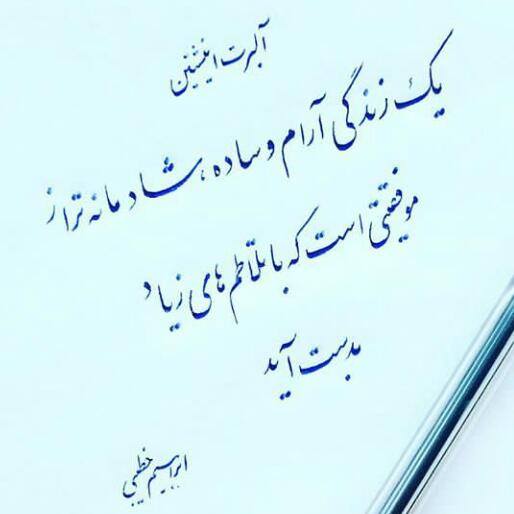 آلبرت انیشتین
یک زندگی آرام و ساده، شادمانه تر از
موفقیتی است که با تلاطم های زیاد
بدست آید
ابراهیم خطیبی